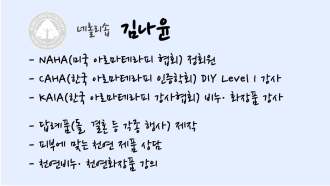 네롤리솝 김나윤
- NAHA(미국 아로마테라피 협회) 정회원
- CAHA(한국 아로마테라피 인증학회) DIY Level 1 강사
- KAIA(한국 아로마테라피 강사협회) 비누· 화장품 강사
- 답례품(돌, 결혼 등 각종 행사) 제작
- 피부에 맞는 천연 제품 상담
- 천연비누· 천연화장품 강의